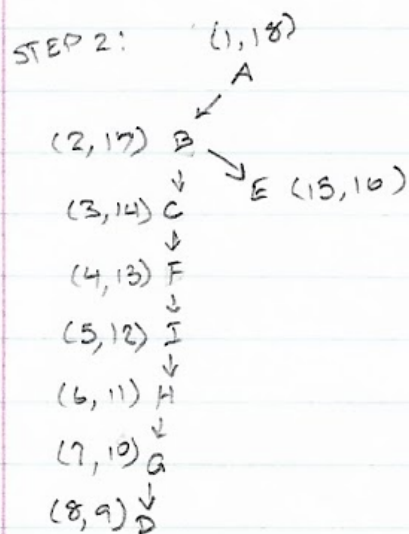 STEP 2: (1,18)
A
(2,17) B
E (15,16)
(3,14) C
(4,13) F
(5,12) I
(6,11) H
(7,10) G
(8,9) D